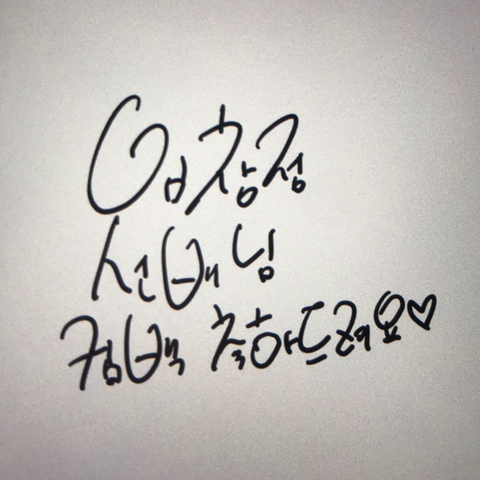 임창정
선배님
컴백 축하드려요♡